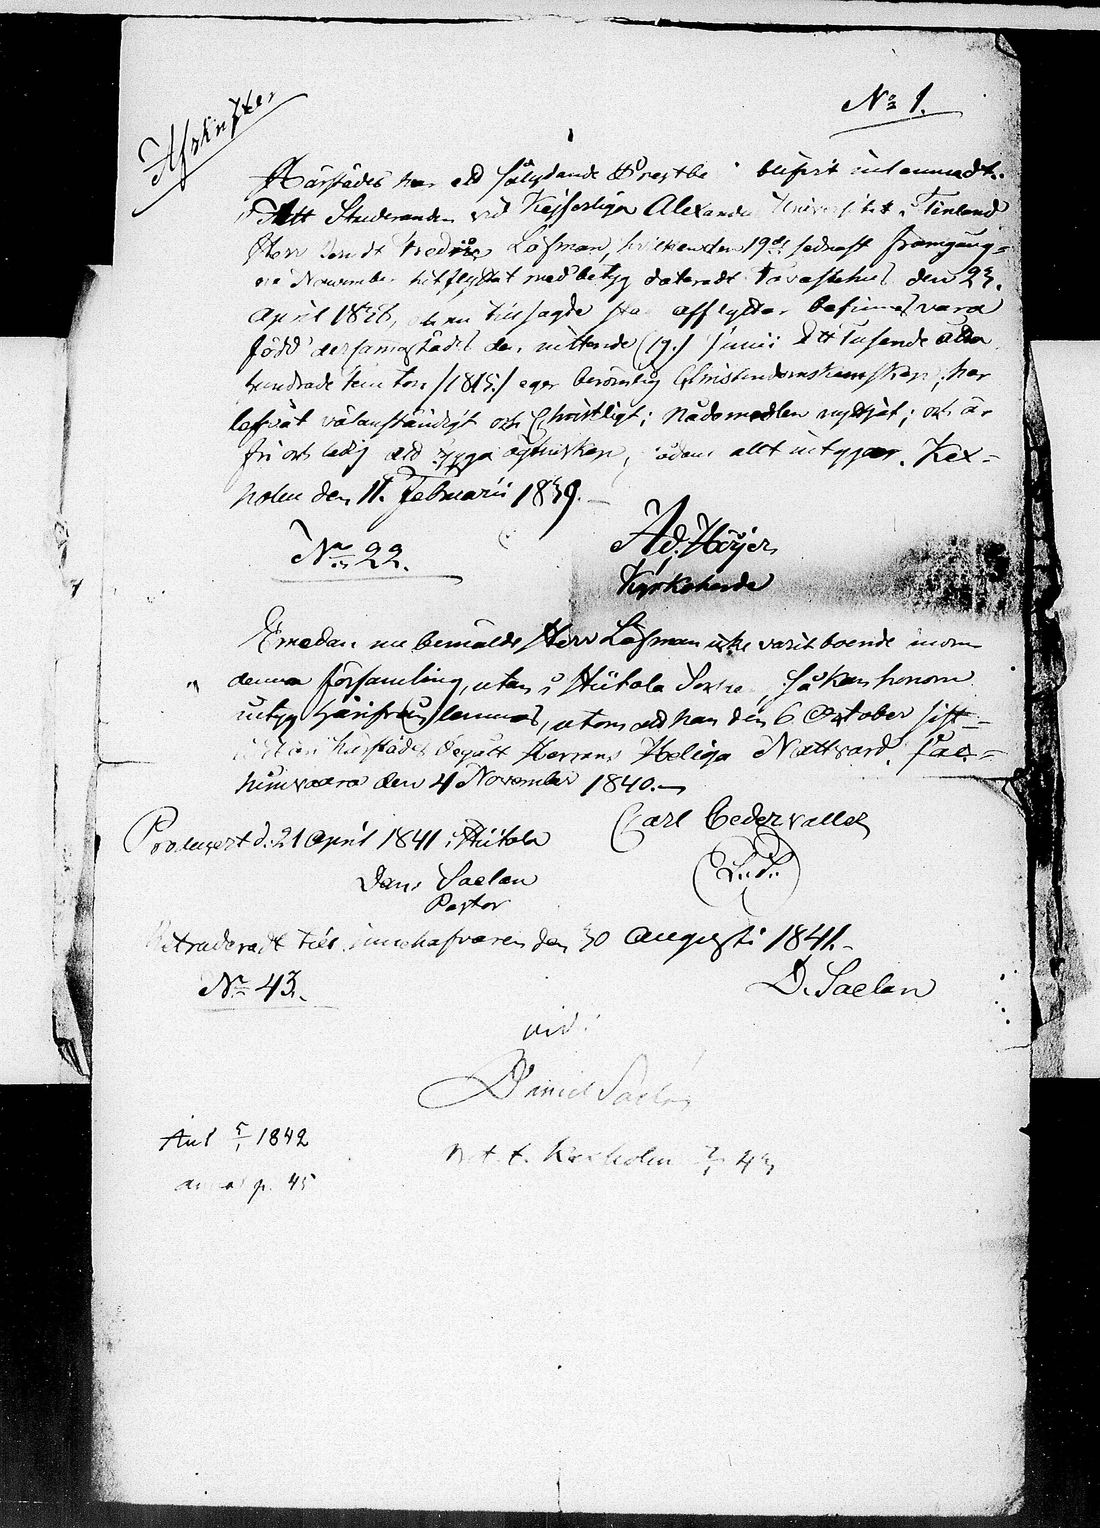 Afskrifter
No 1.
Härstädes har ett sålydande Prestbe blifvit inlemnadt.
Att Studeranden vid Kejserliga Alexanders Universitet i Finland
Herr Fredric Löfman, hvilken den 19de sednast framgång-
ne November hitflyttat med betyg dateradt Tavastehus den 23.
April 1836, nu till sagde afflytta befinnes vara
född dersammastädes den nittonde (19.) Junii Ett Tusende otta
hundrade femton /1815./ eger berömlig Christendomskunskap, har
lefvat välanständigt och Christligt; Nådemedlen nyttjat; och är
fri och ledig till ägtenskap, sådant allt intygar. Kex-
holm den 11. Februarii 1839.
No 22.
Ad. Höijer
Kyrkoherde
Emedan nu bemälde Herr Löfman icke varit boende inom
denna församling, utan i Hiitola Socken, så kan honom
intyg härifrån lemnas, utom att han den 6 October sist-
härstädes begått Herrans Heliga Nattvard. Jaa-
kimvaara den 4 November 1840.
Carl Cedervaller
Producert d. 21 April 1841 i Hiitola
Dan. Saelan
Pastor
L.S.
Extraderadt till innehafvaren den 30 Augusti 1841.
No 43.
D. Saelan
vid:
Daniel Saelan
Ant 5/1 1842
p. 45
Kexholm 43